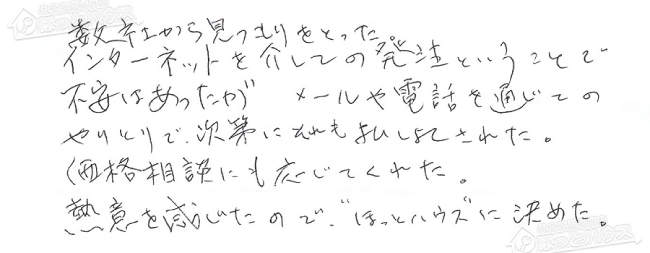 数社から見つもりをとった
インターネットを介しての発注ということで
不安はあったが メールや電話を通じての
やりとりで、次第にそれも払しょくされた。
価格相談にも応じてくれた。
熱意を感じたので、"ほっとハウス"に決めた。